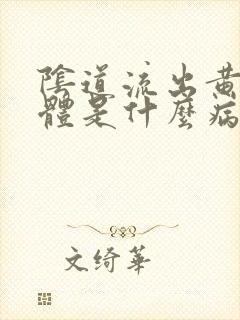 陰道流出黄
體是什麼病
文绮華